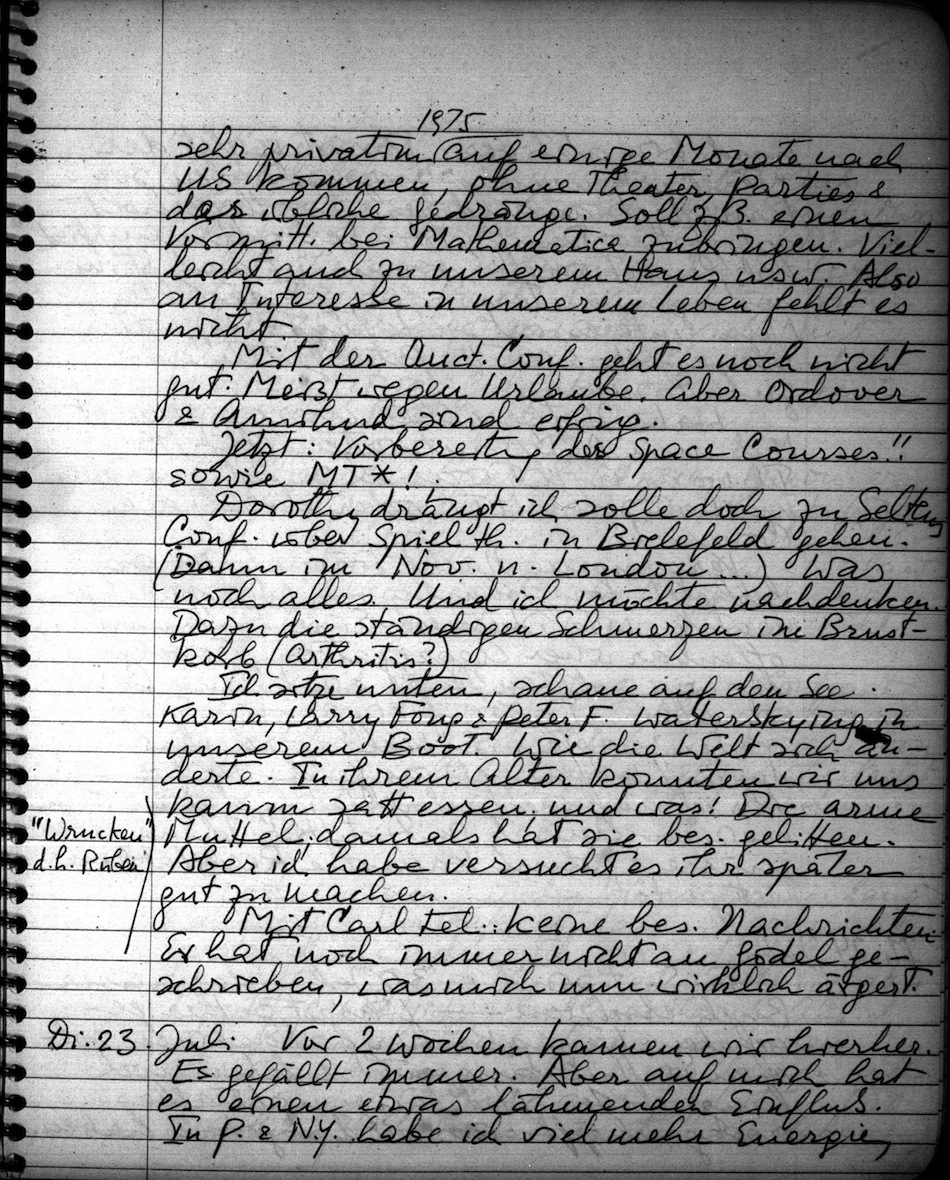 1975
sehr privatim auf einige Monate nach
US kommen, ohne Theater, Parties &
das übliche Gedränge. Soll z.B. einen
Vormitt. bei Mathematica zubringen. Viel-
leicht auch zu unserem Haus usw. Also
an Interesse in unserem Leben fehlt es
nicht.
Mit der Auct. Conf. geht es noch nicht
gut. Meist wegen Urlaube. Aber Ordover
& Amihud sind eifrig.
Jetzt: Vorbereitg des Space Courses!!
sowie MT*!
Dorothy drängt ich solle doch zu Seltens
Conf. über Spielth. in Bielefeld gehen.
(Dann im Nov. n. London ...) Was
noch alles. Und ich möchte nachdenken.
Dazu die ständigen Schmerzen im Brust-
korb (Arthritis?)
Ich sitze unten, schaue auf den See.
Karin, Larry Fong & Peter F. waterskying in
unserem Boot. Wie die Welt sich än-
derte. In ihrem Alter konnten wir uns
kaum satt essen, und was! Die arme
"Wrucken" Muttel; damals hat sie bes. gelitten.
d.h. Rüben Aber ich habe versucht es ihr später
gut zu machen.
Mit Carl tel.: keine bes. Nachrichten.
Er hat noch immer nicht an Gödel ge-
schrieben, was mich nun wirklich ärgert.
Di. 23. Juli Vor 2 Wochen kamen wir hierher.
Es gefällt immer. Aber auf mich hat
es einen etwas lähmenden Einfluß.
In P. & N.Y. habe ich viel mehr Energie,